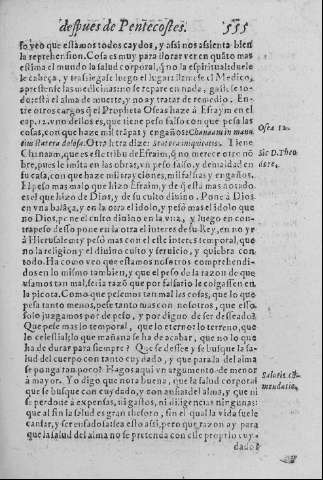 despues de Pentecostes. 535
so veo que estamos todos caydos, y assi nos assienta bien
la reprehension. Cosa es muy para llorar ver en quãto mas
estima el mundo la salud corporal, q̃ no la espiritual: duele
le la cabeça, y
luego el lugar: llamese el Medico,
apliestense las medicinas: no se repare en nada, gaste se to-
do: està el alma de muerte, y no ay tratar de remedio. En-
tre otros cargos q̃ el Propheta Oseas haze à Efraym en el
cap. 12. vno dellos es, que tiene peso falso con que pesa las
cosas, con que haze mil trãpas y engaños: Chanaam in manu
eius statera dolosa: Otra letra dize: Statera iniquitatis. Tiene
Chanaam, que es epiteto de Efraim, q̃ no merece otro nõ
bre, pues le imita en las obras, vn peso falso, y de maldad en
su casa, con que haze mil trayciones, mil falsias y engaños.
El peso mas malo que hizo Efraim, y de q̃ està mas notado
es el que hizo de Dios, y de su culto diuino. Pone à Dios
en vna balãça, y en la otra el idolo, y pesò mas el idolo que
no Dios, põne el culto diuino en la vna, y luego en con-
trapeso desso pone en la otra el interes de su Rey, en no yr
à Hierusalem: y pesò mas con el este interes temporal, que
no la religion y el diuino culto y seruicio, y quiebra con
todo. Ha como veo que estamos nosotros comprehendi-
dos en lo mismo tambien, y que el peso de la razon de que
vsamos tan mal, seria razõ que por falsario le colgassen en
la picota. Como que pesemos tan mal las cosas, que lo que
pesa tanto menos, pese tanto mas con nosotros, que esso
solo juzgamos por de peso, y por digno de ser desseado?
Que pese mas lo temporal, que lo eterno: lo terreno, que
lo celestial: lo que mañana se ha de acabar, que no lo que
ha de durar para siempre? Que se dessee y se busque la sa-
lud del cuerpo con tanto cuydado, y que para la del alma
se ponga tan poco? Hagos aqui vn argumento de menor
à mayor. Yo digo que nota buena, que la salud corporal
que se busque con cuydado, y con ansias del alma, y que ni
se perdone à expensas, ni gastos, ni diligencias ningunas:
que al fin la salud es gran thesoro, sin el qual la vida suele
cansar, y ser enfadosa: sea esto assi, pero que razon ay para
que la salud del alma no se pretenda con este proprio cuy-
dado?
Osea 12.
Sic D. Theo
dore.
Salutis cõ-
mendatio.